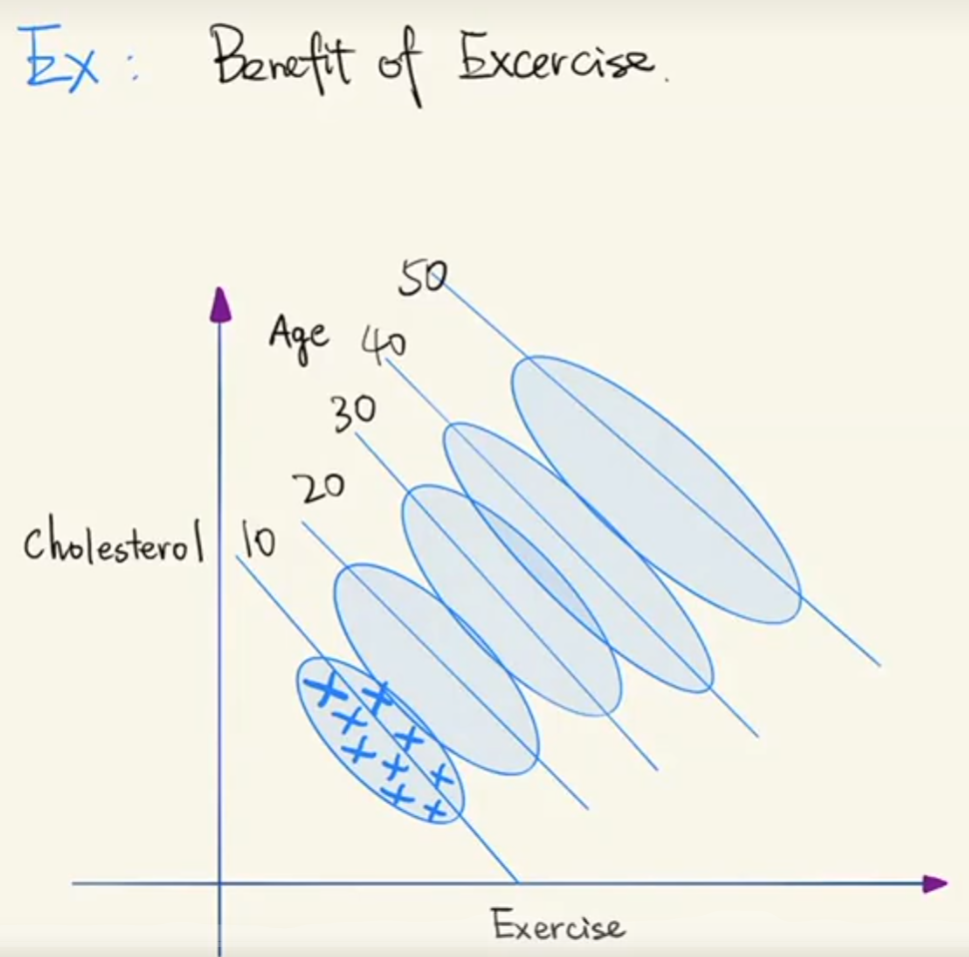 Ex: Benefit of Excercise.
50
Age 40
30
20
Cholesterol 10
Exercise